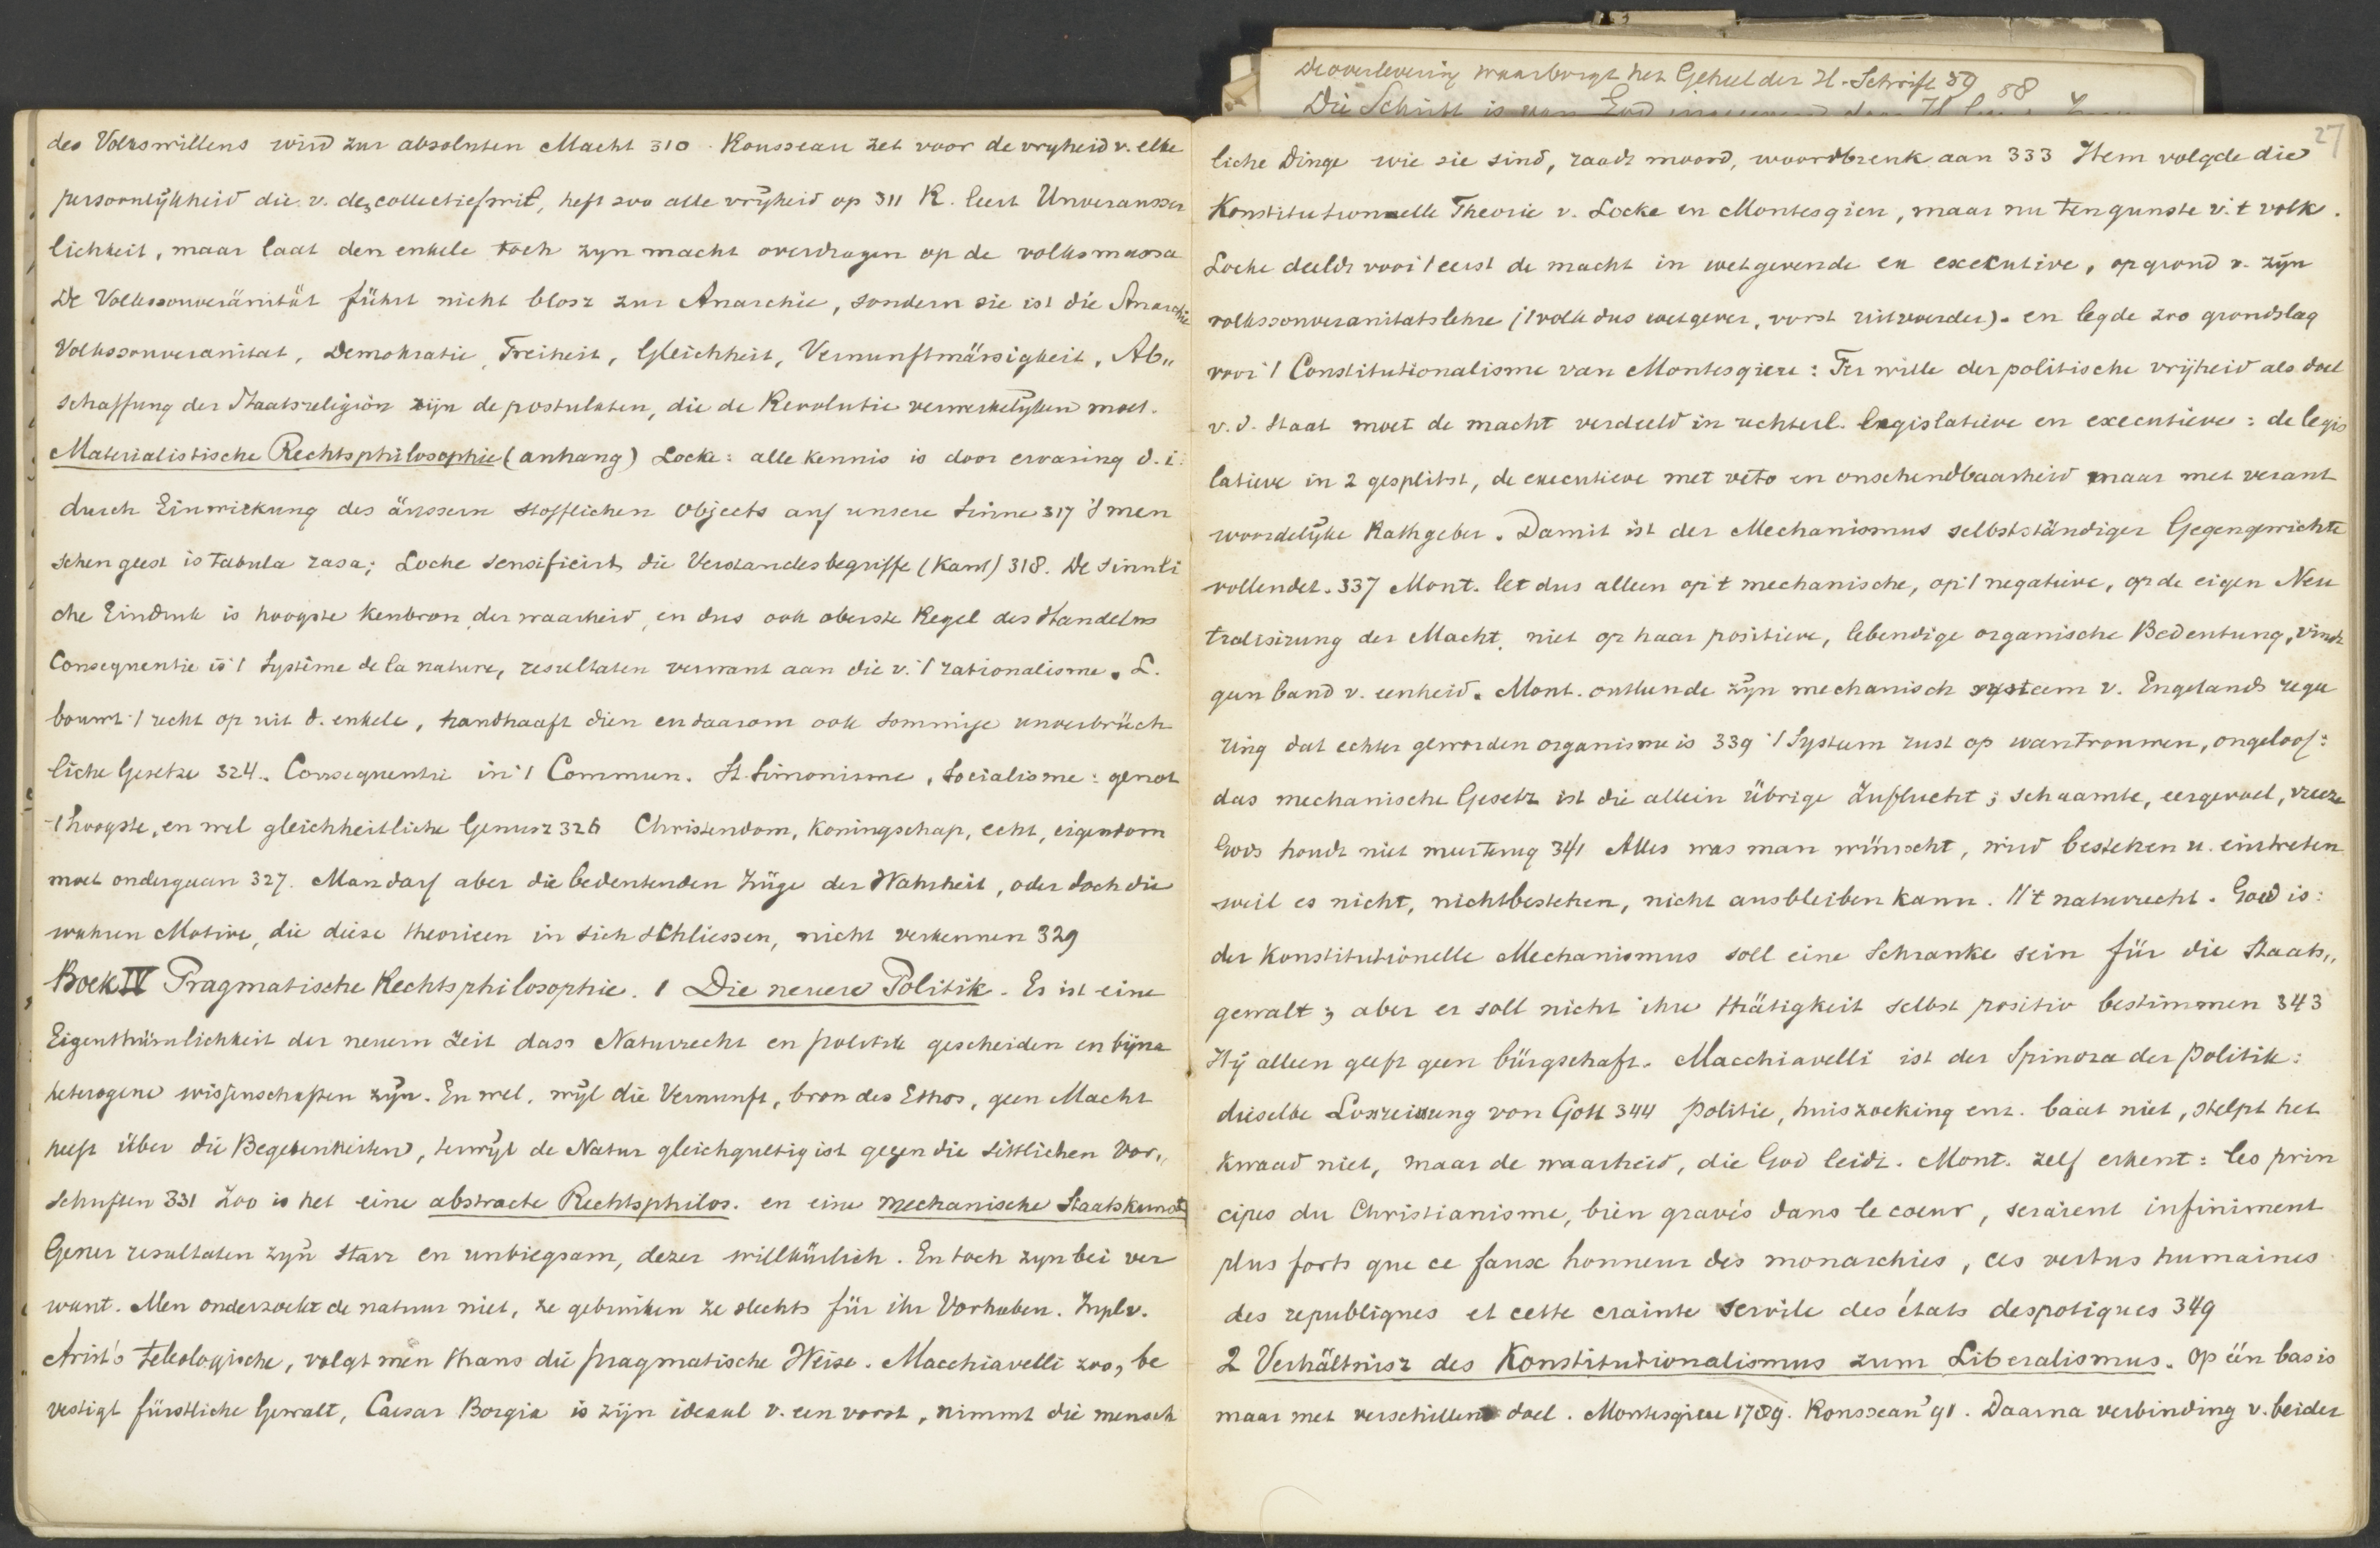 De overlevering waarborgt het Geheel der H. Schrift 59 58
Die Schrift is van God
des Volkswillens wird zur absoluten Macht 310. Rousseau zet voor de vryheid v. elke
persoonlijkheid die v. de collectiefwil, heft zoo alle vrijheid op 311 R. leert Unveräusser
lichkeit, maar laat den enkele toch zyn macht overdragen op de volksmassa
De Volkssouveränität führt nicht blosz zur Anarchie, sondern sie ist die Anarchie
Volkssouveranitat, Demokratie, Freiheit, Gleichheit, Vernunftmässigkeit, Ab„
schaffung der Staatsreligion zijn de postulaten, die de Revolutie verwerkelyken moet.
Materialistische Rechtsphilosophie (anhang) Locke: alle kennis is door ervaring d.i.
durch Einwirkung des äussern stofflichen Objects auf unsere Sinne 317 's men
schen geest is tabula rasa; Locke sensificirt die Verstandesbegriffe (Kant) 318. De sinnli
che Eindruk is hoogste kenbron der waarheid, en dus ook oberste Regel des Handelns
Consequentie is 't Système de la nature, resultaten verwant aan die v. 't rationalisme. L.
bouwt 't recht op uit d. enkele, handhaaft dien en daarom ook sommige unverbrüch
liche Gesetze 324. Consequentie in 't Commun. St. Simonisme, Socialisme: genot
't hoogste, en wel gleichheitliche Genusz 326 Christendom, Koningschap, echt, eigendom
moet ondergaan 327. Man darf aber die bedeutenden Züge der Wahrheit, oder doch die
wahren Motive, die diese theorieen in sich schliessen, nicht verkennen 329
Boek IV Pragmatische Rechtsphilosophie. 1 Die neuere Politik. Es ist eine
Eigenthümlichkeit der neuern Zeit dass Naturrecht en politik gescheiden en bijna
heterogene wissenschaften zyn. En wel, wyl die Vernunft, bron des Ethos, geen Macht
heeft über die Begebenheiten, terwyl de Natur gleichgultig ist gegen die sittlichen Vor„
schriften 331 Zoo is het eine abstracte Rechtsphilos. en eine mechanische Staatskunst
Gener resultaten zyn starr en unbiegsam, dezer willkürlich. En toch zyn bei ver
want. Men onderzoekt de natuur niet, ze gebruiken ze slechts für ihr Vorhaben. In pl. v.
Arist's teleologische, volgt men thans die pragmatische Weise. Macchiavelli zoo, be
vestigt fürstliche Gewalt, Caesar Borgia is zijn ideaal v. een vorst, nimmt die mensch
27
liche Dinge wie sie sind, raadt moord, woordbreuk aan 333 Item volgde die
Konstitutionnelle Theorie v. Locke en Montesqieu, maar nu ten gunste v. 't volk.
Locke deelde voor 't eerst de macht in wetgevende en executive, op grond v. zijn
volkssouveranitatslehre ('t volk dus wetgever, vorst uitvoerder). en legde zoo grondslag
voor 't Constitutionalisme van Montesqieu: Ter wille der politische vrijheid als doel
v. d. Staat moet de macht verdeeld in rechterl. legislatieve en executieve: de legis
latieve in 2 gesplitst, de executieve met veto en onschendbaarheid maar met verant
woordelijke Rathgeber. Damit ist der Mechanismus selbstständiger Gegengewichte
vollendet. 337 Mont. let dus alleen op 't mechanische, op 't negatieve, op de eigen Neu
tralisirung der Macht, niet op haar positieve, lebendige organische Bedeutung, vindt
geen band v. eenheid. Mont. ontleende zijn mechanisch systeem v. Engelands rege
ring dat echter geworden organisme is 339 't System rust op wantrouwen, ongeloof:
das mechanische Gesetz ist die allein übrige Zuflucht; schaamte, eergevoel, vreeze
Gods houdt niet meer terug 341 Alles was man wünscht, wird bestehen u. eintreten
weil es nicht, nichtbestehen, nicht ausbleiben kann. 't naturrecht. Goed is:
der Konstitutionelle Mechanismus soll eine Schranke sein für die Staats„
gewalt; aber er soll nicht ihre thätigkeit selbst positiv bestimmen 343
Hij alleen geeft geen bürgschaft. Macchiavelli ist der Spinoza der Politik:
dieselbe Losreissung von Gott 344 Politie, huiszoeking enz. baat niet, stelpt het
kwaad niet, maar de waarheid, die God leidt. Mont. zelf erkent: les prin
cipes du Christianisme, bien gravés dans le coeur, seraient infiniment
plus forts que ce faux honneur des monarchies, ces vertus humaines
des republiques et cette crainte servile des états despotiques 349
2 Verhältnisz des Konstitutionalismus zum Liberalismus. Op één basis
maar met verschillend doel. Montesqieu 1789. Rousseau '91. Daarna verbinding v. beider